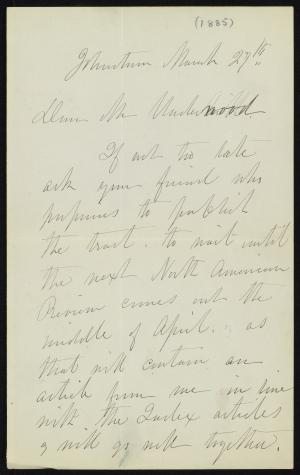 (1885)
Johnstown March 27th
Dear Mr Underwood
If not too late
ask your friend who
proposes to publish
the tract. to wait until
the next North American
Review comes out the
middle of April. as
that will contain an
article from me in line
with the Index articles
& will go well together.